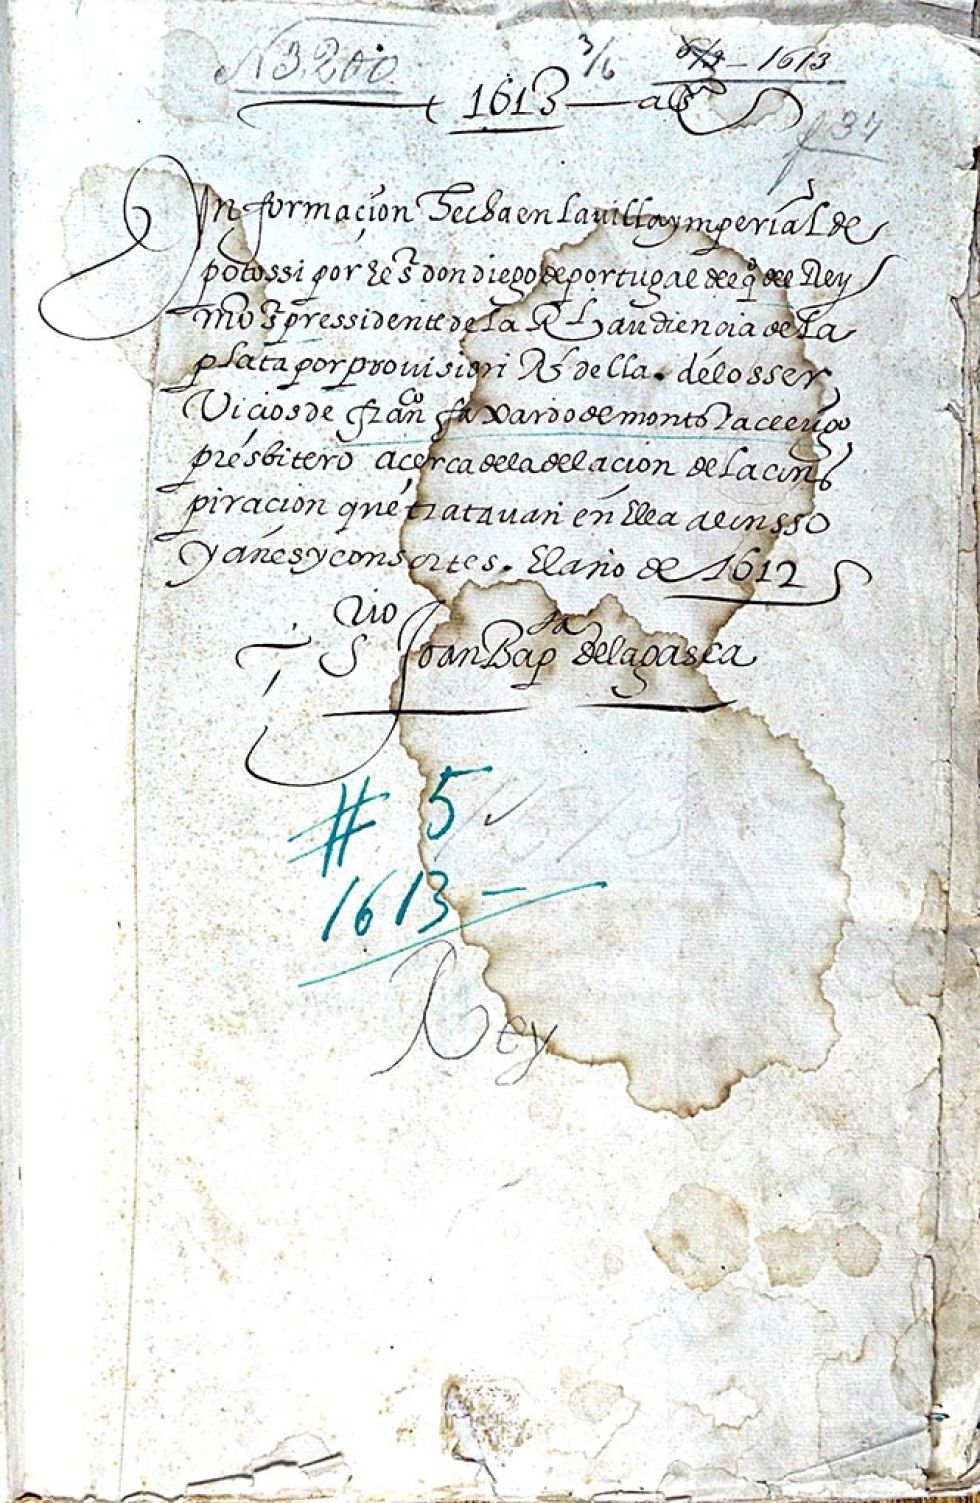 N 3,200
3/6
6/3 - 1613
1613 as
f 34
Ynformaçion hecha en la villa ymperial de
potossi por el sr don diego de portugal del qo del Rey
nro sr pressidente de la Rl audiencia de la
plata por provision Rl della. de los ser
Vicios de franco faxardo de monts
presbitero acerca de la delacion de la cons
piracion que tratavan en ella alonsso
yañes y consortes. El año de 1612
Srio
Joan Bapta de la gasca
# 5
1613
1613 -
Rey